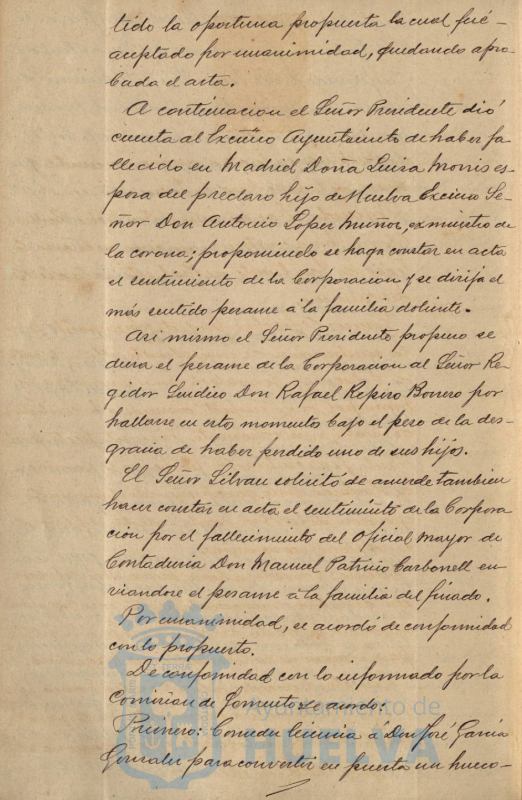 tido la oportuna propuesta la cual fué
aceptado por unanimidad, quedando apro-
bada el acta.
A continuacion el Señor Presidente dió
cuenta al Excmo Ayuntamiento de haber fa
llecido en Madrid Doña Luisa Morris es-
posa del preclaro hijo de Huelva Excmo Se-
ñor Don Antonio Lopez Muñoz, exministro de
la corona; proponiendo se haga constar en acta
el sentimiento de la Corporacion y se dirija el
más sentido pesame á la familia doliente.
Asi mismo el Señor Presidente propuso se
diera el pesame de la Corporacion al Señor Re-
gidor Sindico Don Rafael Repiso Borrero por
hallarse en estos momentos bajo el peso de la des-
gracia de haber perdido uno de sus hijos.
El Señor Silvan solicitó se acuerde tambien
hacer constar en acta el sentimiento de la Corpora
cion por el fallecimiento del Oficial mayor de
Contaduria Don Manuel Patricio Carbonell en
viandose el pesame á la familia del finado.
Por unanimidad, se acordó de conformidad
con lo propuesto.
De conformidad con lo informado por la
Comision de Fomento se acordo:
Primero: Conceder licencia á Don José Garcia
Gonzalez para convertir en puerta un hueco-
Ayuntamiento de
HUELVA